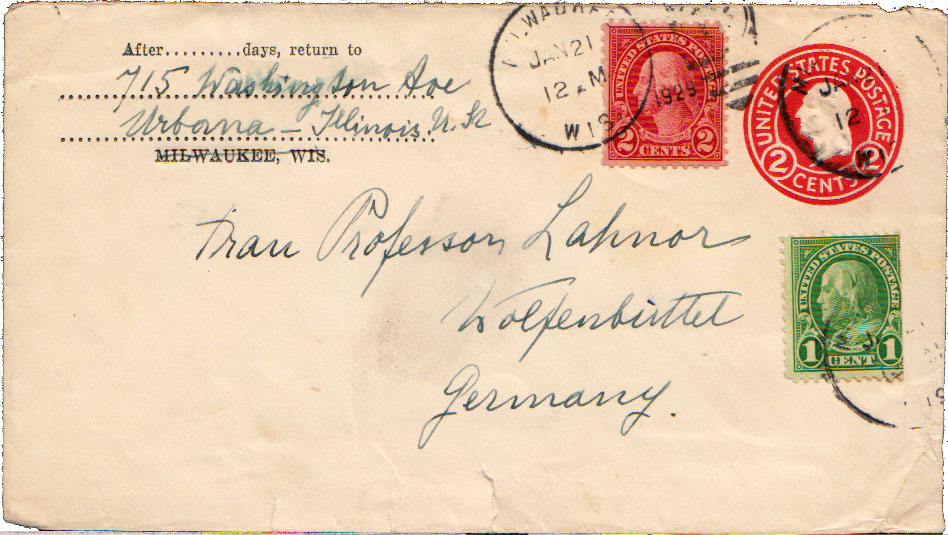 After.........days, return to
715 Washington Ave
Urbana – Illinois. U.S.
MILWAUKEE, WIS.
MILWAUKEE
JAN 21
12 M
1929
WIS
UNITED STATES POSTAGE
2 CENTS 2
UNITED STATES POSTAGE
2 CENTS 2
JA
12
WI
Frau Professor Lahnor
Wolfenbüttel
Germany.
UNITED STATES POSTAGE
1 CENT 1